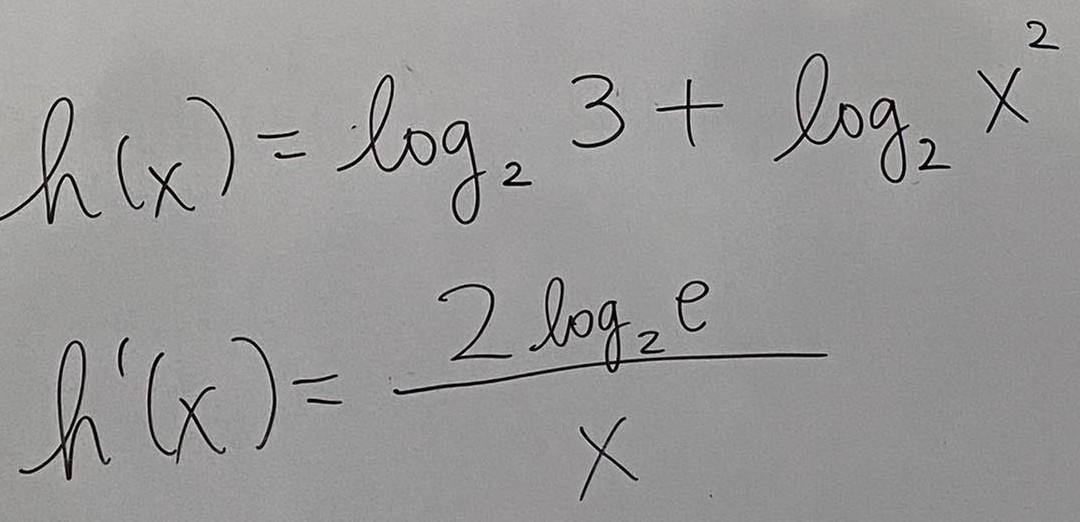 h(x) = log₂ 3 + log₂ x²
h'(x) = 2 log₂ e / x